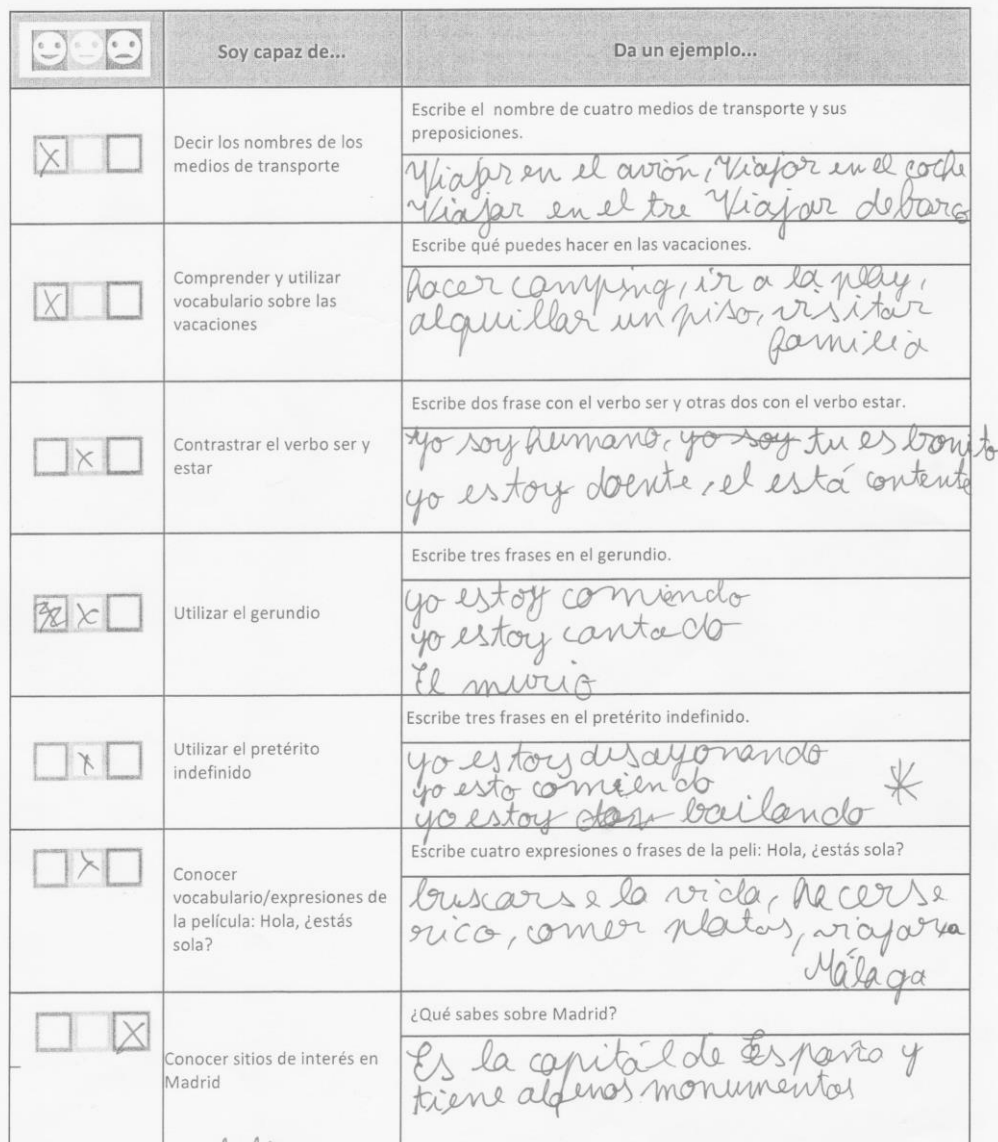 Soy capaz de...
Da un ejemplo...
Decir los nombres de los
medios de transporte
Escribe el nombre de cuatro medios de transporte y sus
preposiciones.
Viajar en el avión, Viajar en el coche
Viajar en el tre Viajar de barco
Comprender y utilizar
vocabulario sobre las
vacaciones
Escribe qué puedes hacer en las vacaciones.
hacer camping, ir a la play,
alquillar un piso, visitar
familia
Contrastrar el verbo ser y
estar
Escribe dos frase con el verbo ser y otras dos con el verbo estar.
yo soy humano, yo soy tu es bonito
yo estoy doente, el está contente
Utilizar el gerundio
Escribe tres frases en el gerundio.
yo estoy comiendo
yo estoy cantado
El murio
Utilizar el pretérito
indefinido
Escribe tres frases en el pretérito indefinido.
yo estoy disayonando
yo esto comiendo
yo estoy bailando
Conocer
vocabulario/expresiones de
la película: Hola, ¿estás
sola?
Escribe cuatro expresiones o frases de la peli: Hola, ¿estás sola?
buscarse la vida, hacerse
rico, comer platos, viajar a
Málaga
Conocer sitios de interés en
Madrid
¿Qué sabes sobre Madrid?
Es la capitál de España y
tiene algenos monumentos